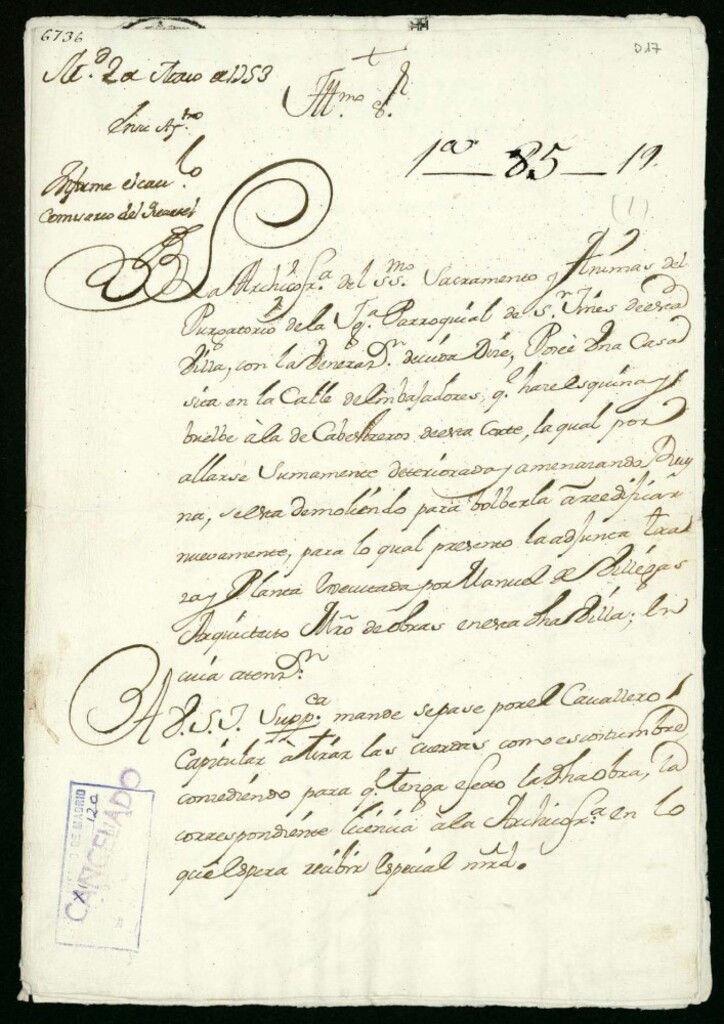 6736
D 17
M.d 2 de Marzo de 1753
+
Yll.mo S.r
En su Ay.to
1a.. — 85 — 19.
Informe el cau.llo
Comisario del Quartel
(1)
La Archicofr.a del SS.mo Sacramento y Animas del
Purgatorio de la Yg.a Parroquial de S.n Ginés de esta
Villa, con la Veneraz.n devida Dize, Poseé Vna Casa
sita en la Calle de Embajadores, q.e haze esquina y
buelbe à la de Cabestreros de esta Corte, la qual por
allarse Sumamente deteriorada y amenazando Ruy
na, se esta demoliendo para bolberla à reedificar
nuevamente, para lo qual presento la adjunta traz
za y Planta executada por Manuel de Villegas
Arquitecto Mro de obras en esta dha Villa; En
cuia atenz.n
A V.S.I. Supp.ca mande se pase por el Cavallero
Capitular à tirar las cuerdas como es costumbre
conzediendo para q.e tenga efecto la dha obra, la
correspondiente licencia à la Archicofr.a en lo
que espera rezibir especial mrd.
DE MADRID
120
CANCELADO